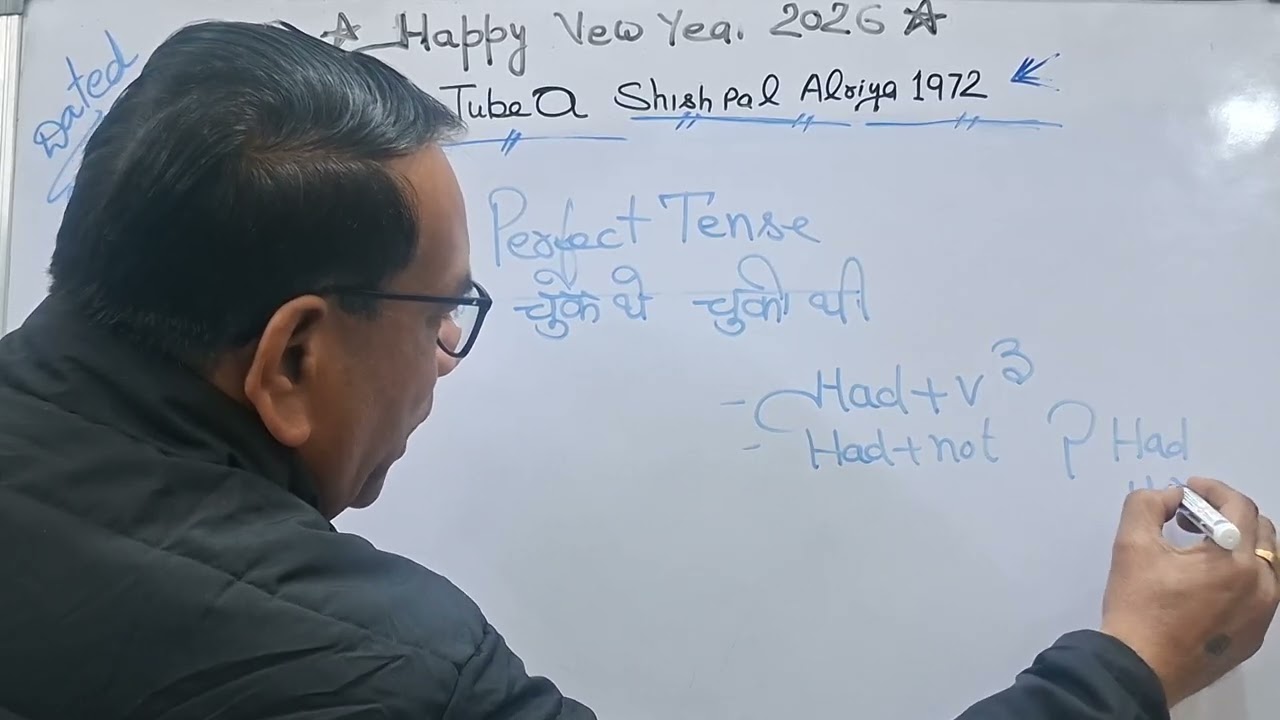 Happy New Year. 2026
Dated
Tube Shish pal Alriya 1972
Perfect Tense
चुके थे चुकी थी
- Had + v3
- Had + not ? Had